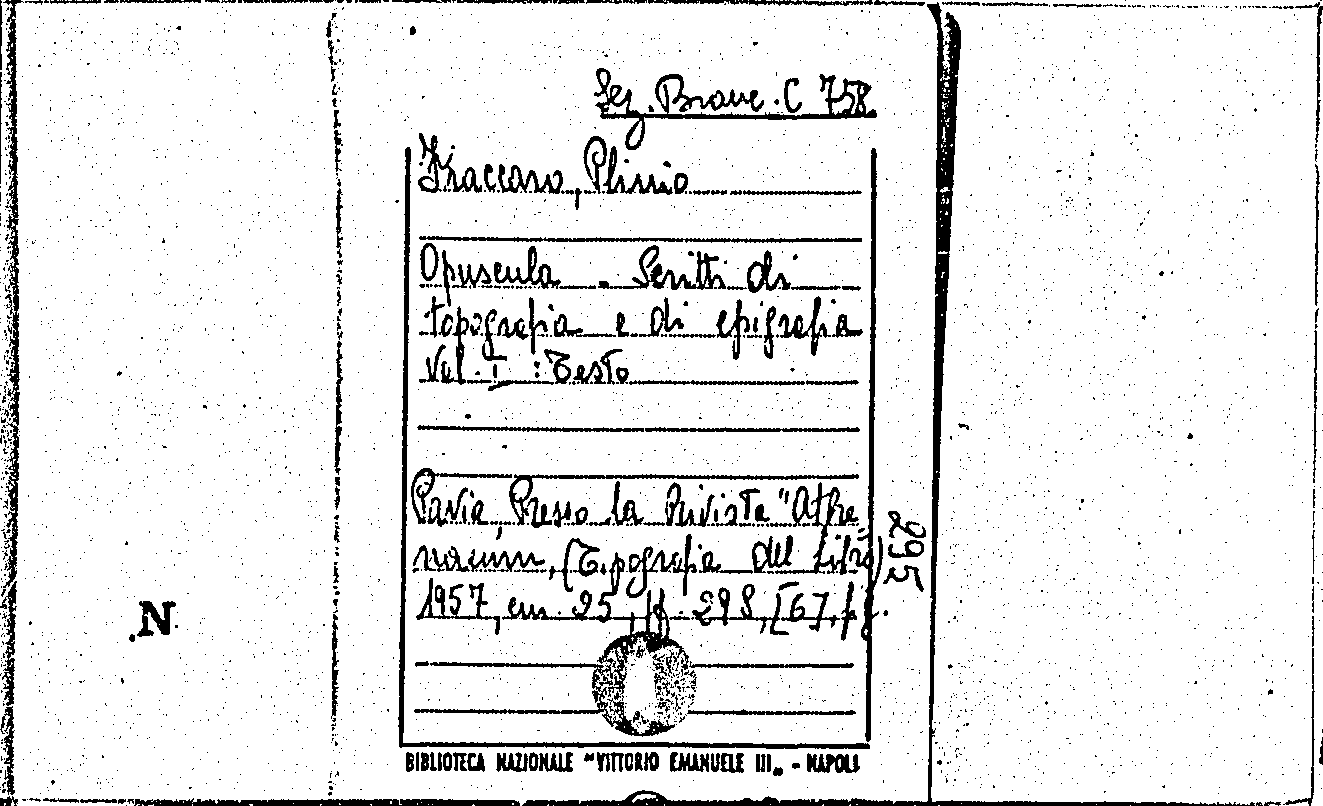 Sez. Branc. C 758
Fraccaro, Plinio
Opuscula - Scritti di
topografia e di epigrafia
Vol. I : Testo
Pavia, Presso la Rivista "Athe
naeum, (Tipografia del libro)
1957, cm. 25, pp. 298, [6], fig.
295
.N
BIBLIOTECA NAZIONALE "VITTORIO EMANUELE III„ - NAPOLI